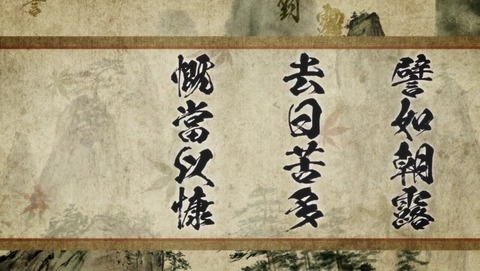 譬如朝露
去日苦多
慨當以慷